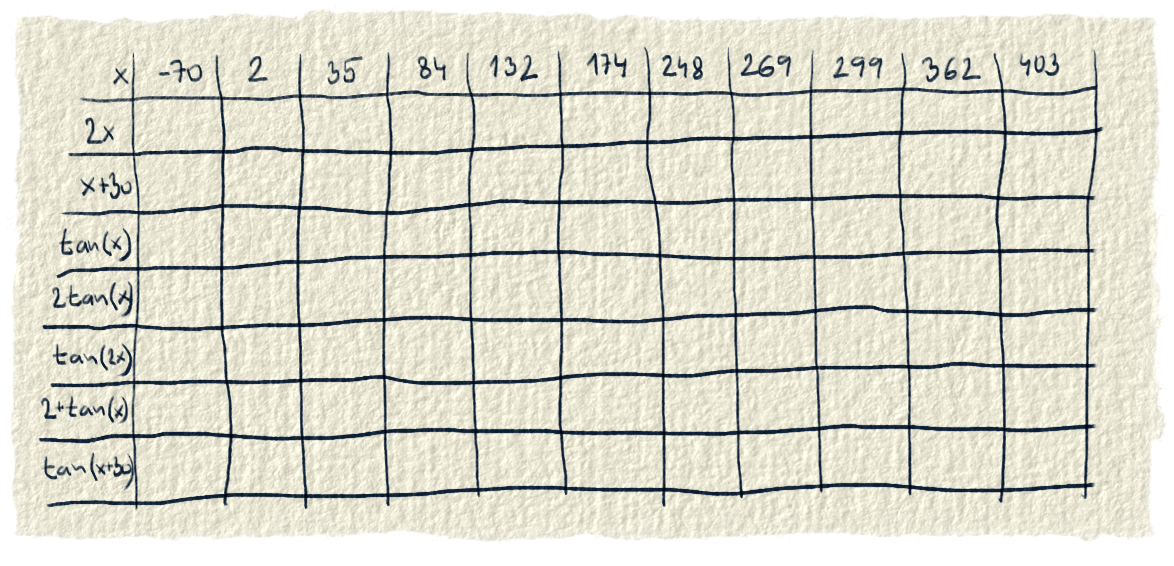 x -70 2 35 84 132 174 248 269 299 362 403
2x
x+30
tan(x)
2tan(x)
tan(2x)
2+tan(x)
tan(x+30)